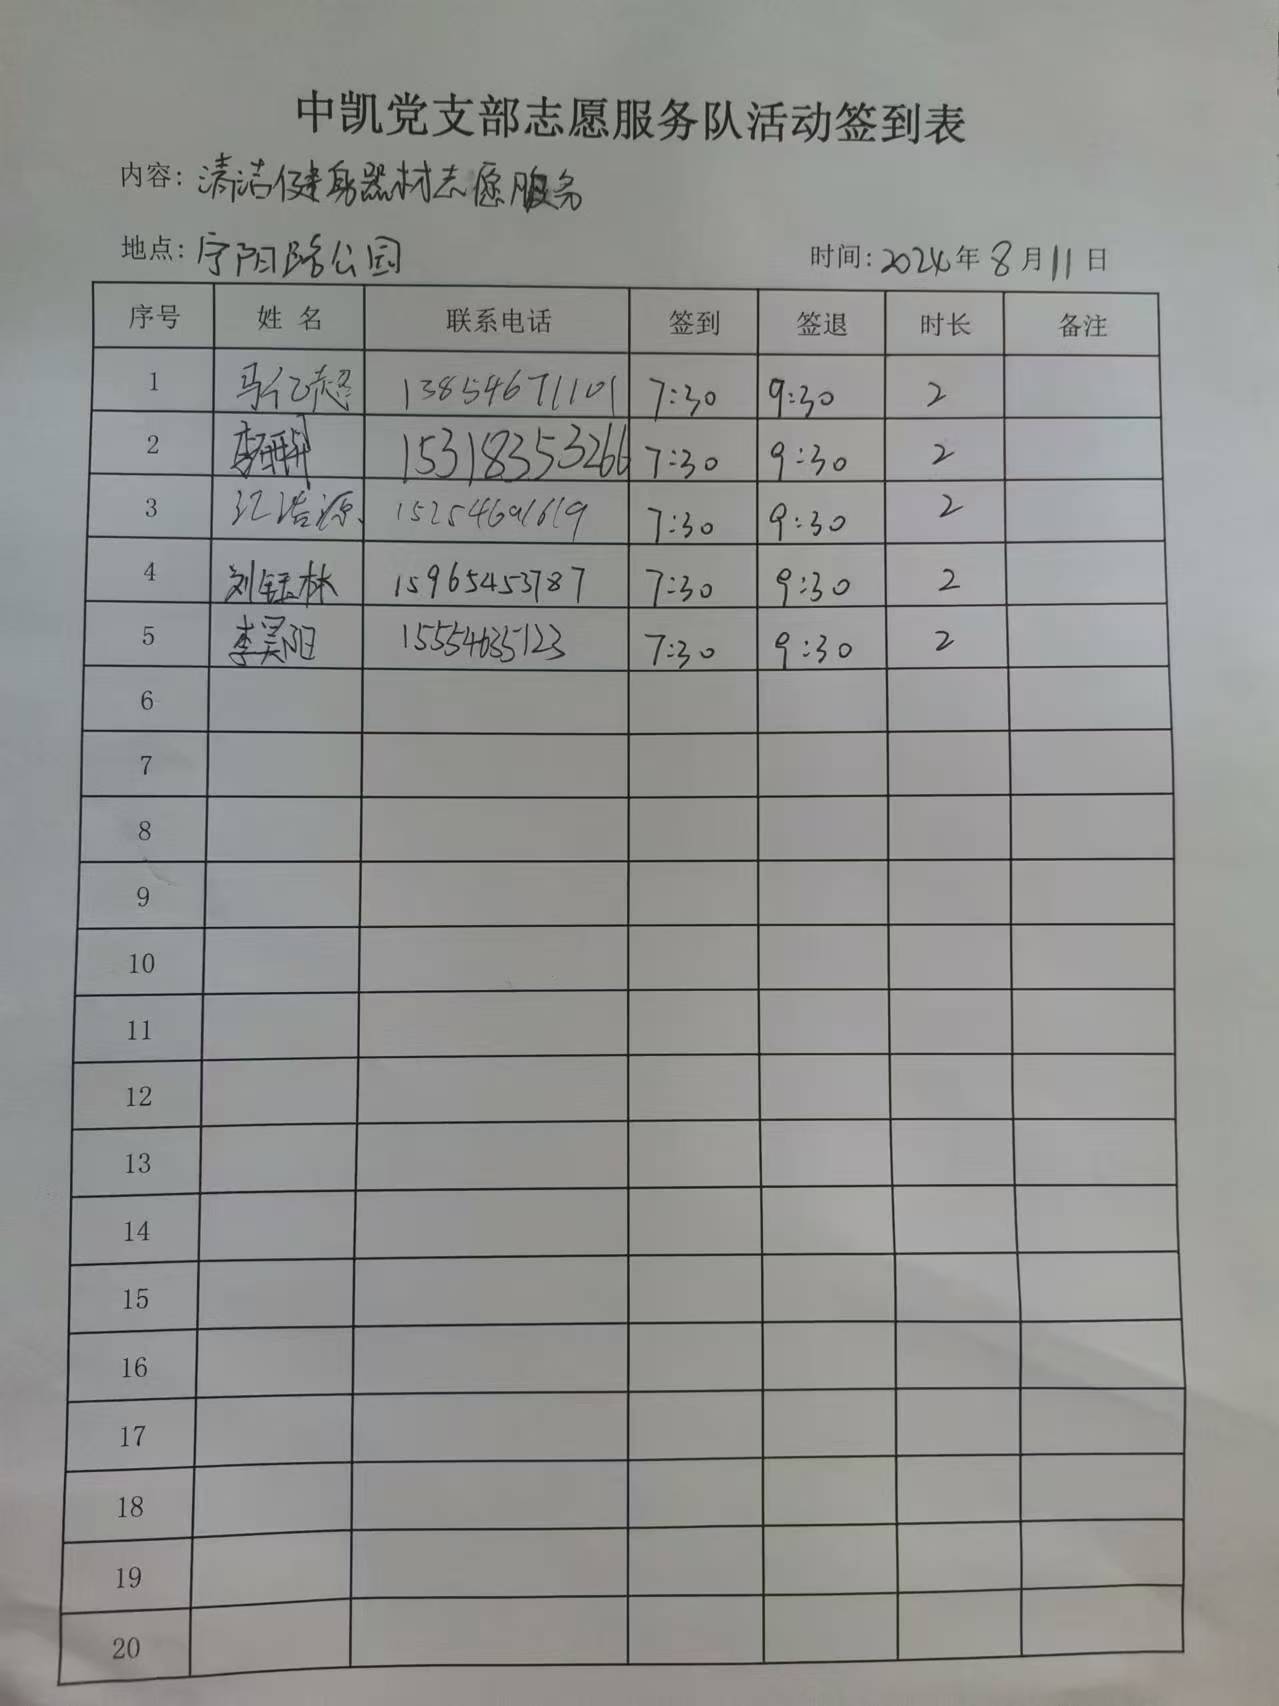 中凯党支部志愿服务队活动签到表
内容: 清洁健身器材志愿服务
地点: 宁阳路公园 时间: 2024年8月11日
序号 姓名 联系电话 签到 签退 时长 备注
1 马亿超 13854671101 7:30 9:30 2
2 李 15318353266 7:30 9:30 2
3 江浩源 15254691619 7:30 9:30 2
4 刘钰林 15965453787 7:30 9:30 2
5 李昊阳 15554635123 7:30 9:30 2
6
7
8
9
10
11
12
13
14
15
16
17
18
19
20